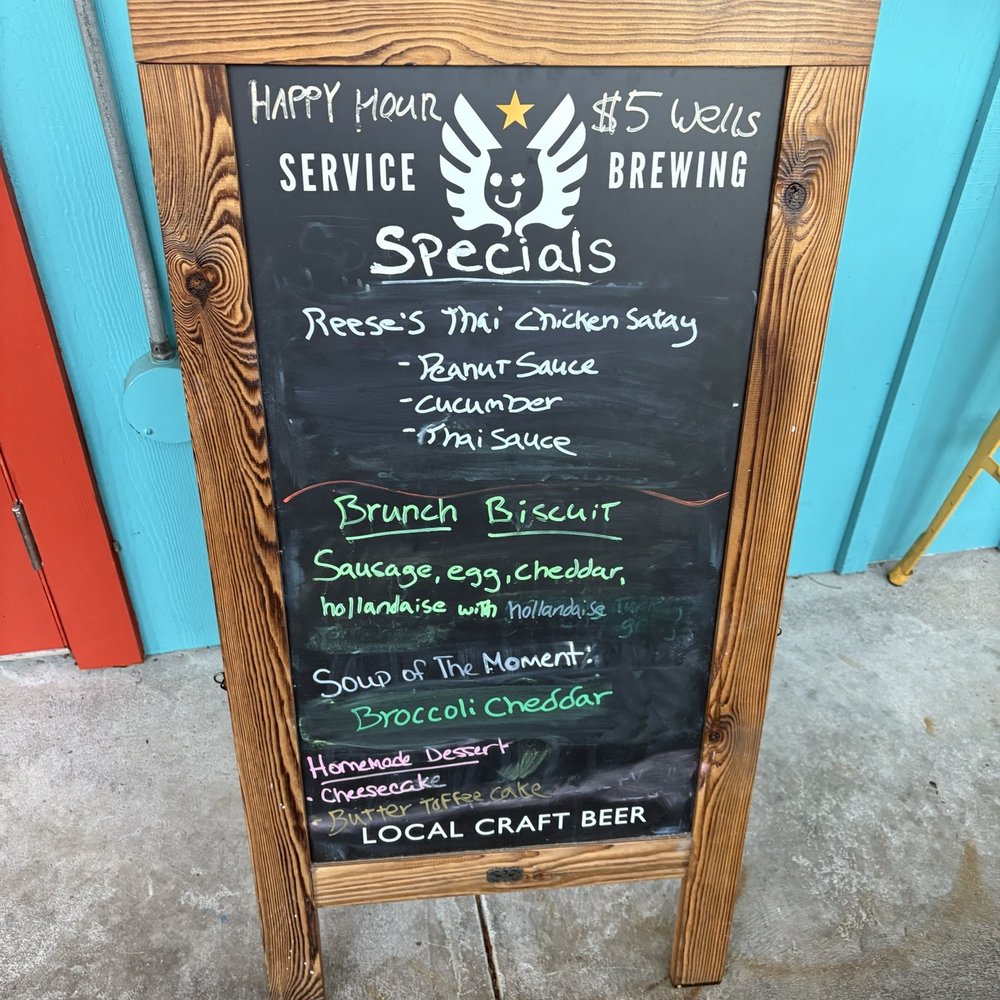 HAPPY HOUR $5 Wells
SERVICE BREWING
Specials
Reese's Thai Chicken Satay
- Peanut Sauce
- cucumber
- Thai Sauce
Brunch Biscuit
Sausage, egg, cheddar,
hollandaise with hollandaise
Soup of The Moment:
Broccoli Cheddar
Homemade Dessert
• Cheesecake
• Butter Toffee cake
LOCAL CRAFT BEER